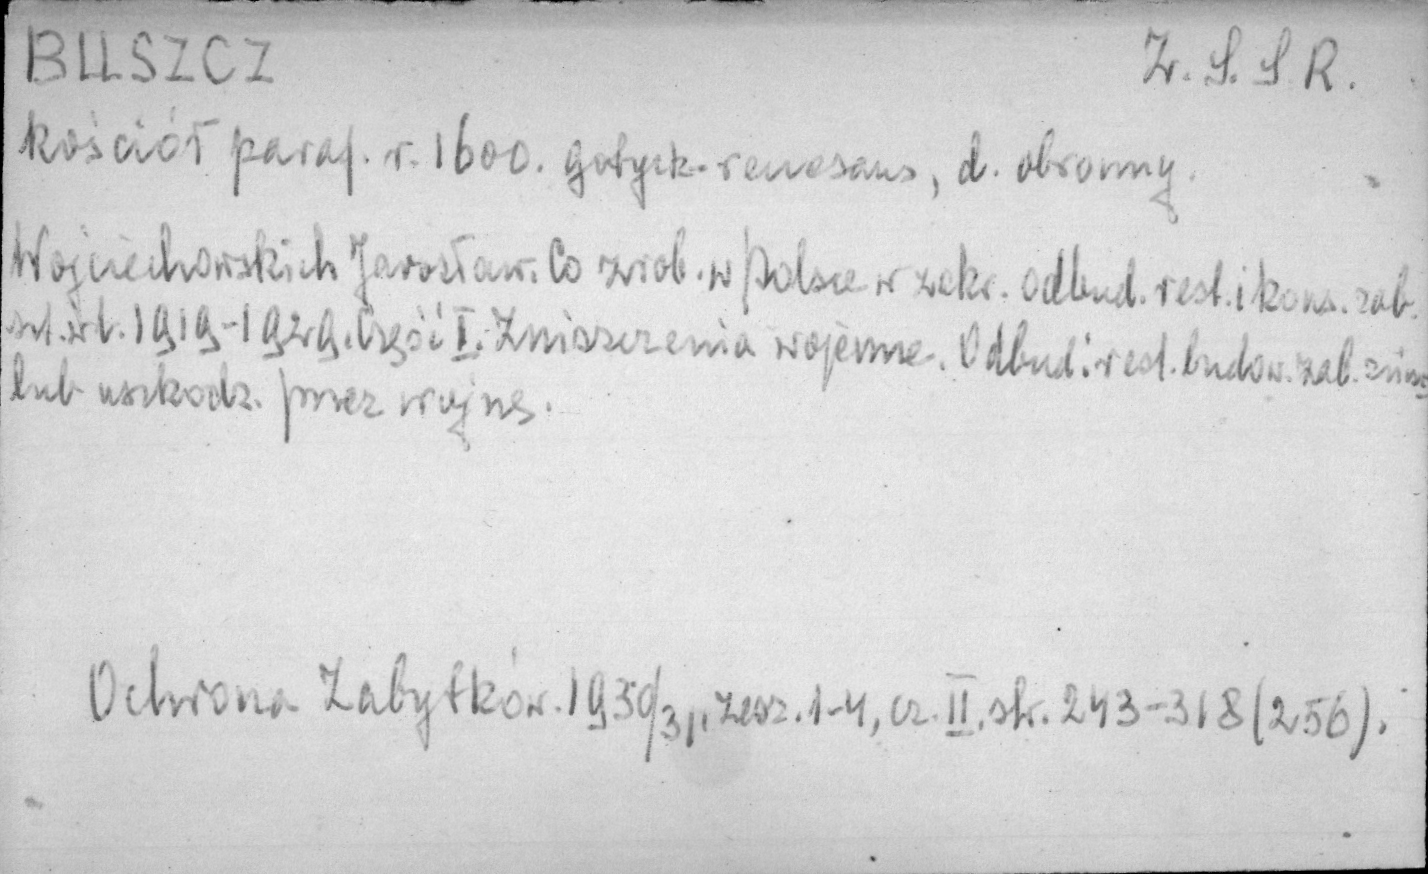 BUSZCZ Z. S. S R.
kościół paraf. r. 1600. gotyck-renesans, d. obronny.
Wojciechowskich Jarosław. Co zrob. w Polsce w zakr. odbud. rest. i kons. zab.
szt. w l. 1919-1929. Część I. Zniszczenia wojenne. Odbud. i rest. budow. zab. zniszcz
lub uszkodz. przez wojnę.
Ochrona Zabytków. 1930/31, zesz. 1-4, cz. II. str. 243-318 (256).